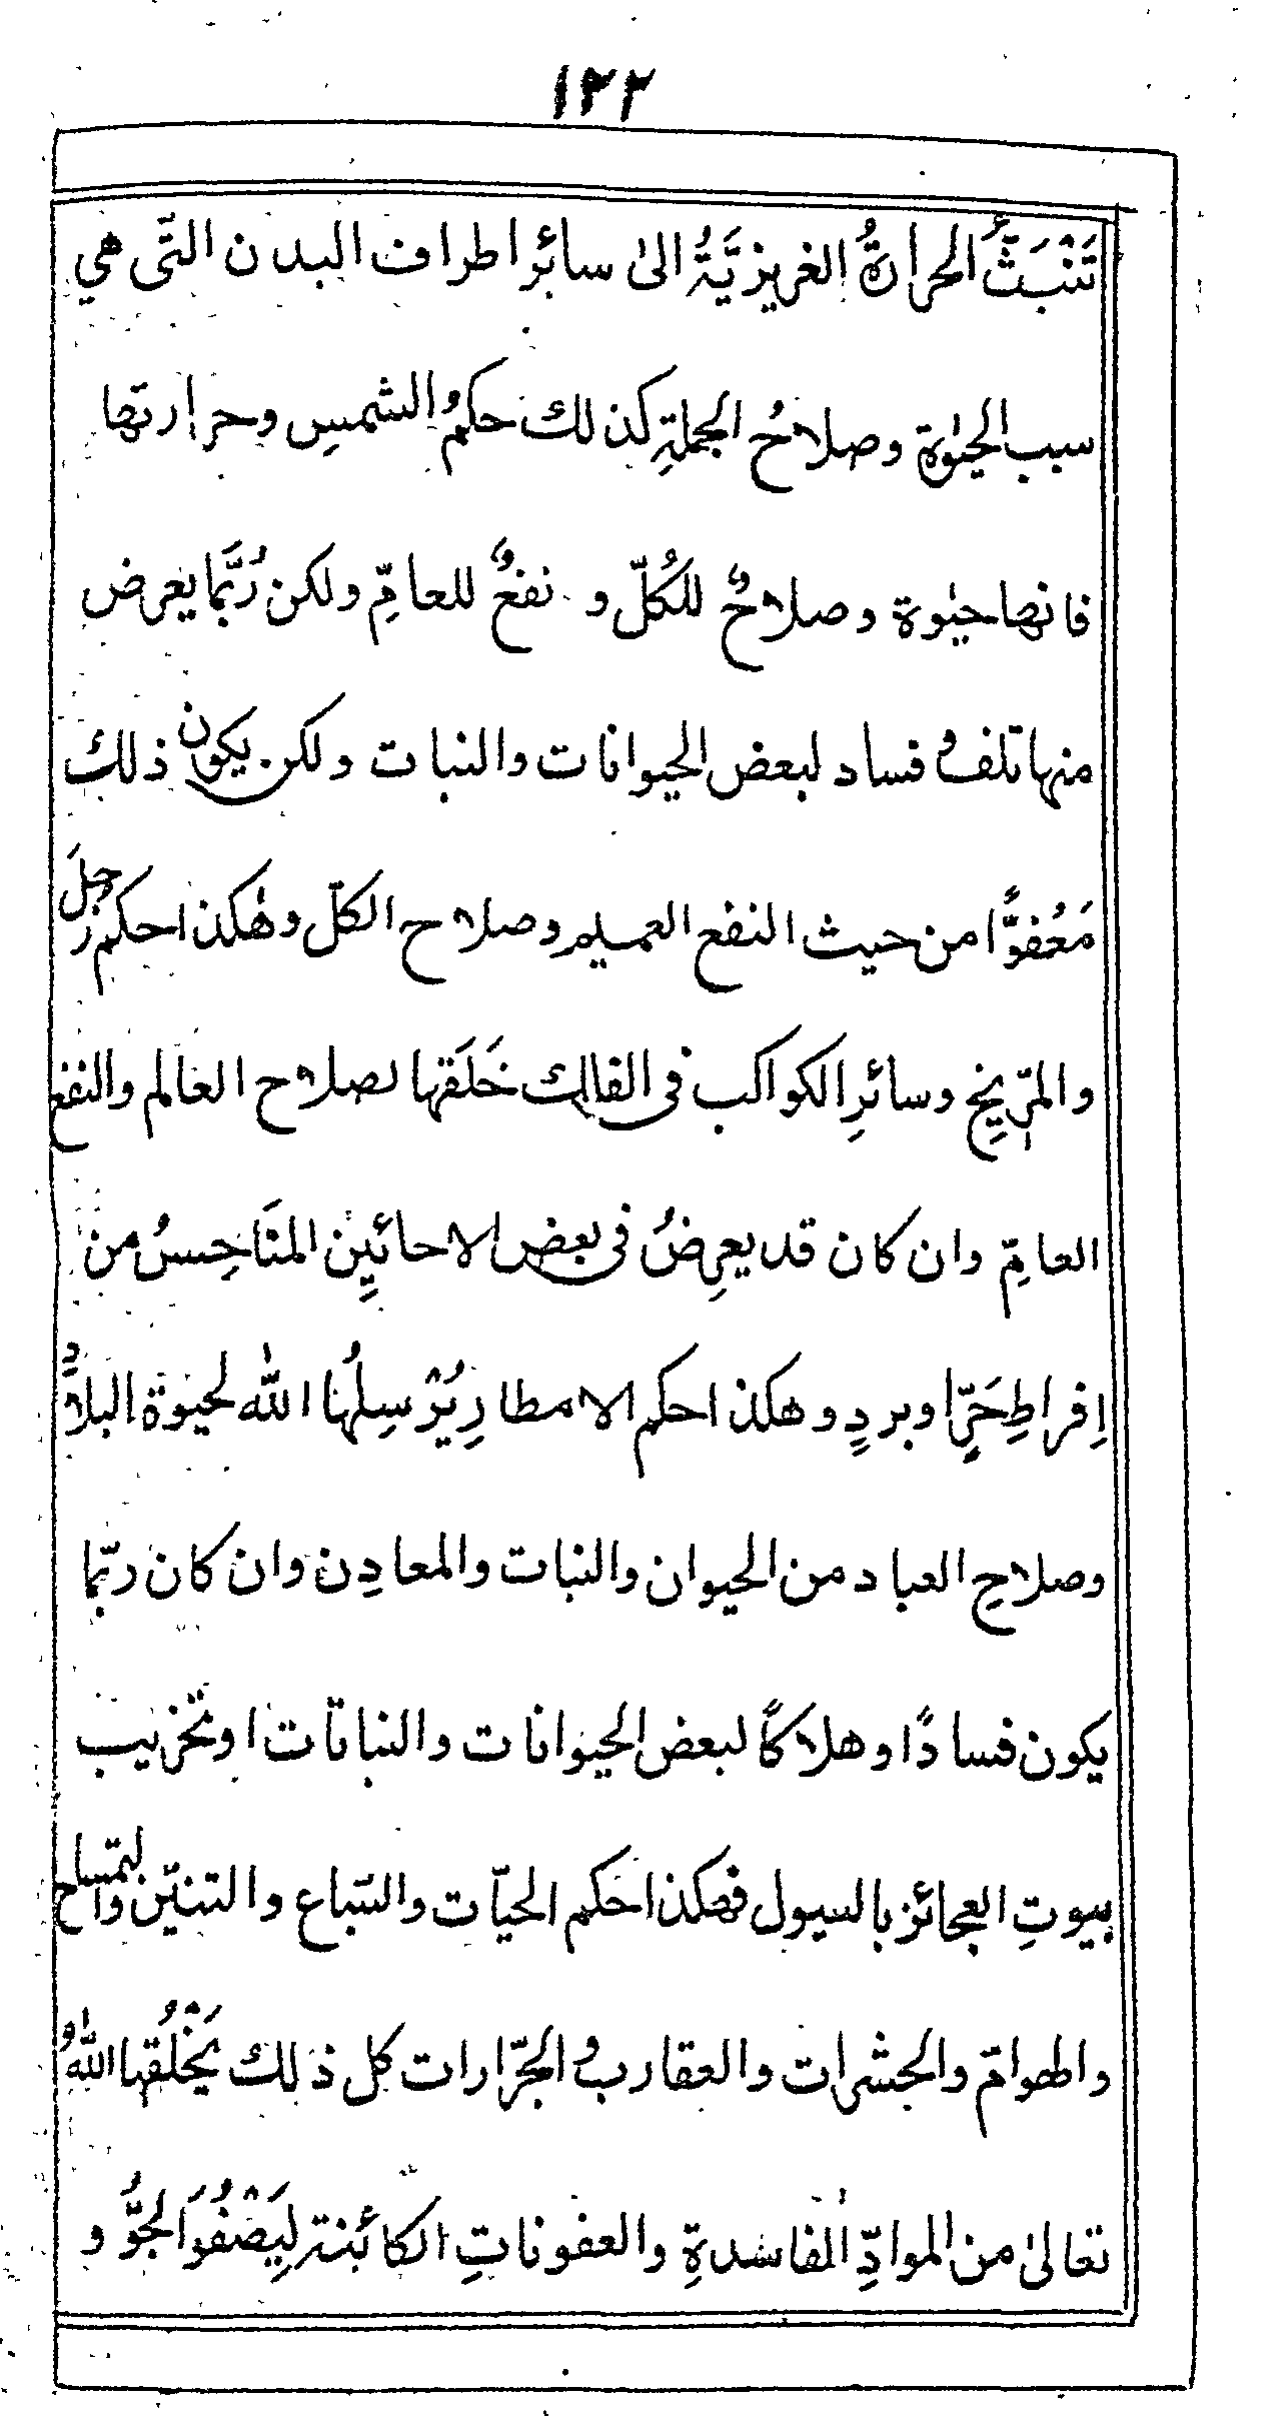 ١٢٢
تَنْبَثُّ الحرارةُ الغريزيَّةُ الىٰ سائر اطراف البدن التّى هي
سبب الحيٰوة وصلاحُ الجملةِ كذلك حكمُ الشمسِ وحرارتها
فانها حيٰوة وصلاحٌ للكُلّ و نفعٌ للعامِّ ولكن رُبَّما يعرض
منها تلفٌ وفساد لبعض الحيوانات والنبات ولكن يكون ذلك
مَعْفوًّا من حيث النفع العميم وصلاح الكلّ وهٰكذا حكم زحلَ
والمرّيخِ وسائرِ الكواكب فى الفلك خَلَقها لصلاح العالم والنفع
العامِّ وان كان قد يعرِضُ فى بعض الاحائينِ المنَاحِسُ من
اِفراطِ حَرٍّ او بردٍ وهكذا حكم الامطارِ يُرْسِلُها اللّٰه لحيوة البلادِ
وصلاحِ العباد من الحيوان والنبات والمعادِن وان كان ربّما
يكون فسادًا وهلاكًا لبعض الحيوانات والنباتات او تخريب
بيوتِ العجائز بالسيول فهكذا حكم الحيّات والسّباع والتنيّن والتمساح
والهوامّ والحشرات والعقارب والجرّارات كل ذلك يَخْلُقها اللّٰهُ
تعالىٰ من الموادِّ الفاسدةِ والعفوناتِ الكائنة لِيَصْفُوَ الجوُّ و